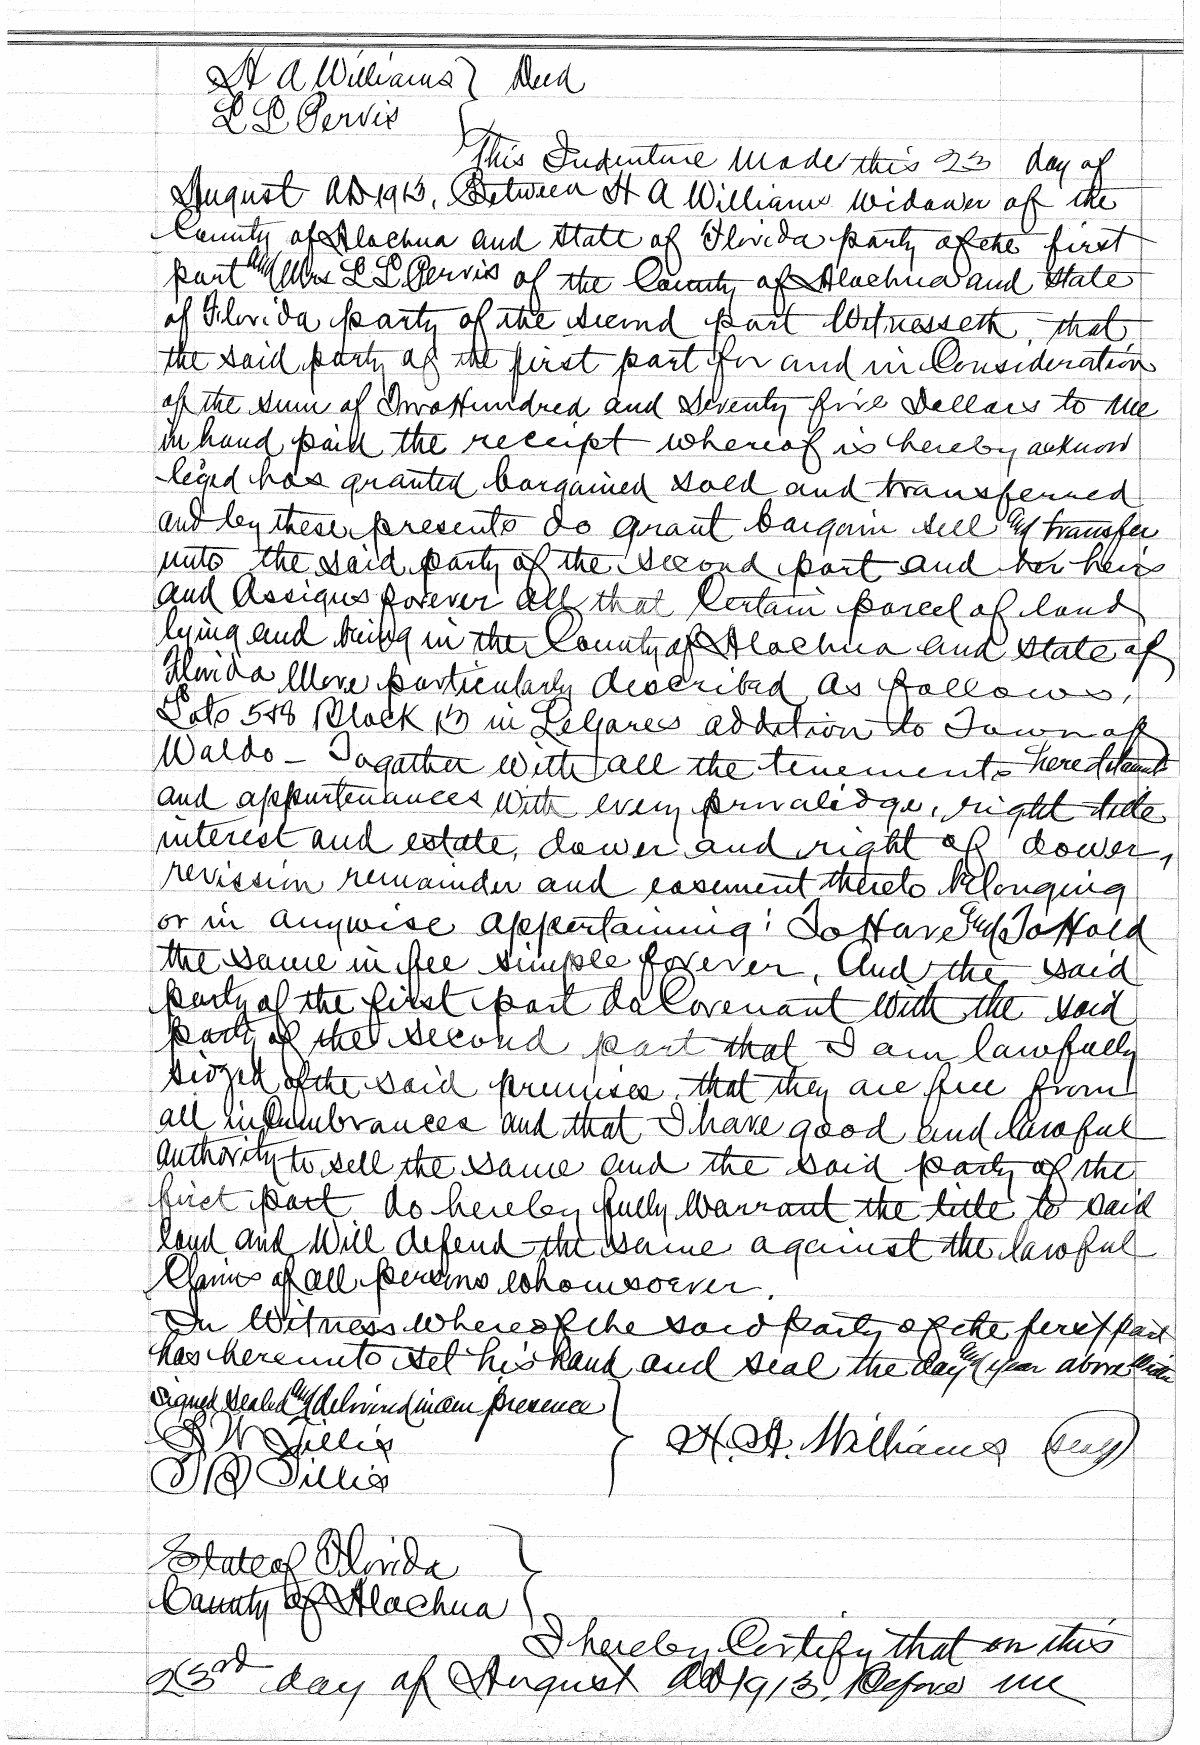 H A Williams } Deed
L L Pervis
This Indenture Made this 23 day of
August AD 1913, Between H A Williams widower of the
County of Alachua and State of Florida party of the first
part and Mrs L L Pervis of the County of Alachua and State
of Florida party of the second part Witnesseth, that
the said party of the first part for and in Consideration
of the sum of Two Hundred and Seventy five Dollars to me
in hand paid the receipt whereof is hereby acknow
leged has granted bargained sold and transferred
and by these presents do grant bargain sell and transfer
unto the said party of the second part and her heirs
and Assigns forever all that Certain parcel of land
lying and being in the County of Alachua and State of
Florida More particularly described as follows,
Lots 5&8 Block 13 in LeGares addition to Town of
Waldo - Together With all the tenements hereditaments
and appurtenances With every privalidge, right title
interest and estate, dower and right of dower,
revission remainder and easement thereto belonging
or in anywise appertaining: To Have and To Hold
the same in fee simple forever, And the said
party of the first part do Covenant With the said
party of the second part that I am lawfully
siezed of the said premises, that they are free from
all incumbrances and that I have good and lawful
authority to sell the same and the said party of the
first part do hereby fully Warrant the title to said
land and Will defend the same against the lawful
Claims of all persons whomsoever.
In Witness Whereof the said party of the first part
has hereunto set his hand and seal the day and year above
Signed sealed and delivered in our presence
Tillis } H. A. Williams (Seal)
Tillis
State of Florida }
County of Alachua
I hereby Certify that on this
23rd day of August AD 1913, Before me